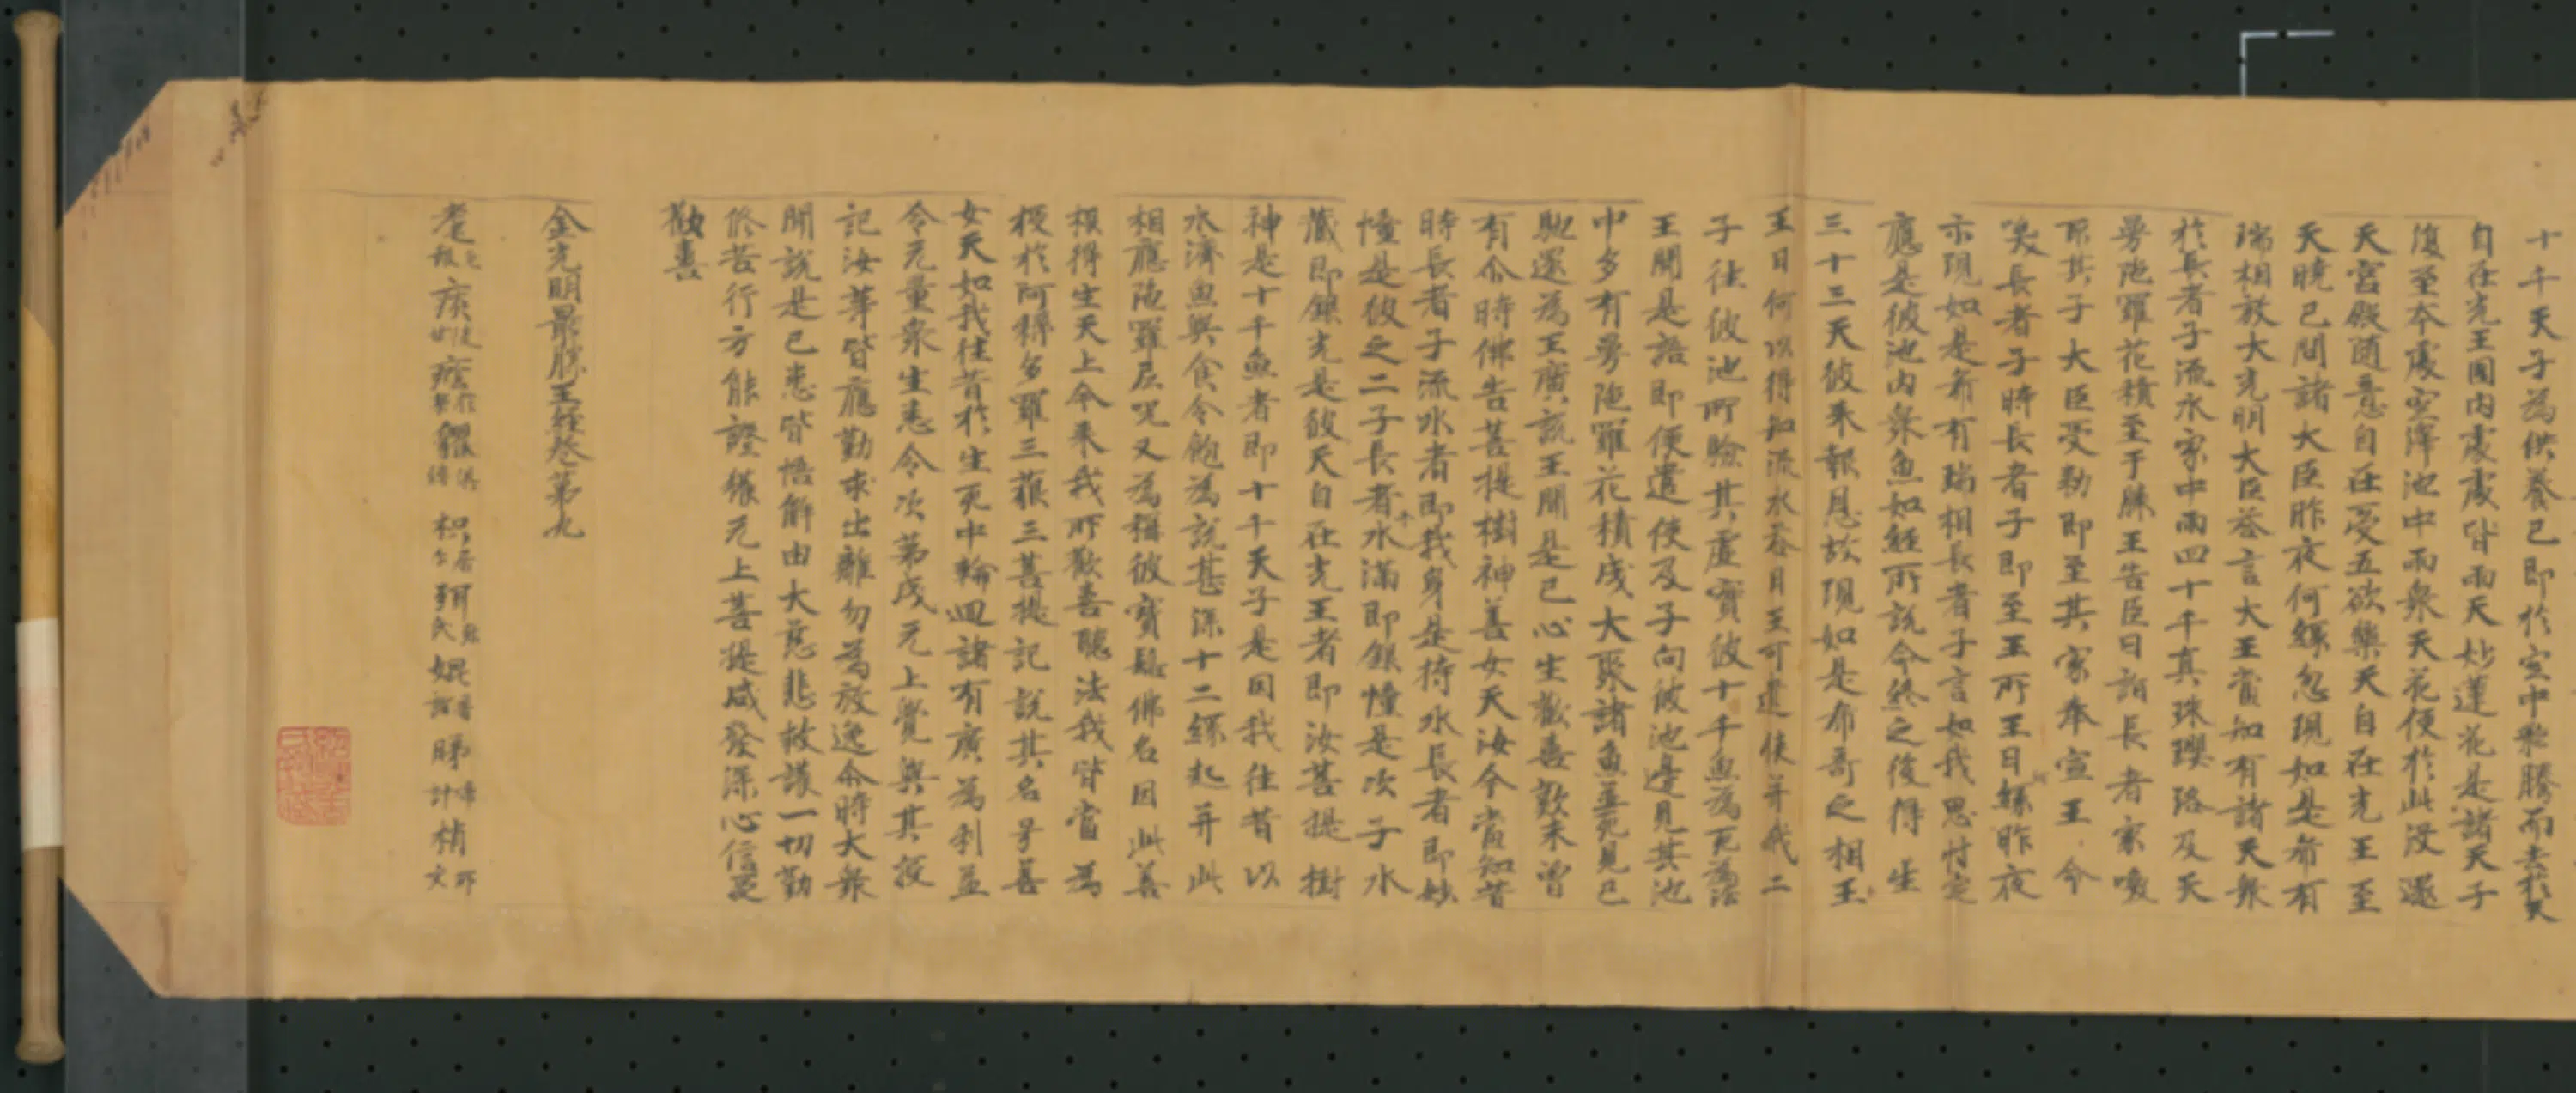 十千天子為供養已即於空中飛騰而去於天
自在光王國內處處皆雨天妙蓮花是諸天子
復至本處空澤池中雨眾天花便於此沒還
天宮殿隨意自在受五欲樂天自在光王至
天曉已問諸大臣昨夜何緣忽現如是希有
瑞相放大光明大臣荅言大王當知有諸天眾
於長者子流水家中雨四十千真珠瓔珞及天
曼陁羅花積至于膝王告臣曰詣長者家喚
取其子大臣受勑即至其家奉宣王令
喚長者子時長者子即至王所王曰何緣昨夜
示現如是希有瑞相長者子言如我思忖定
應是彼池內眾魚如經所說命終之後得生
三十三天彼來報恩故現如是希奇之相王
王曰何以得知流水荅曰王可遣使并我二
子往彼池所驗其虛實彼十千魚為死為活
王聞是語即便遣使及子向彼池邊見其池
中多有曼陁羅花積成大聚諸魚並死見已
馳還為王廣說王聞是已心生歡喜歎未曾
有尒時佛告菩提樹神善女天汝今當知昔
時長者子流水者即我身是持水長者即妙
幢是彼之二子長者子水滿即銀幢是次子水
藏即銀光是彼天自在光王者即汝菩提樹
神是十千魚者即十千天子是因我往昔以
水濟魚與食令飽為說甚深十二緣起并此
相應陁羅尼呪又為稱彼寶髻佛名因此善
根得生天上今來我所歡喜聽法我皆當為
授於阿耨多羅三藐三菩提記說其名号善
女天如我往昔於生死中輪迴諸有廣為利益
令无量眾生悉令次第成无上覺與其授
記汝等皆應勤求出離勿為放逸尒時大眾
聞說是已悉皆悟解由大慈悲救護一切勤
修苦行方能證獲无上菩提咸發深心信受
歡喜
金光明最勝王經卷第九